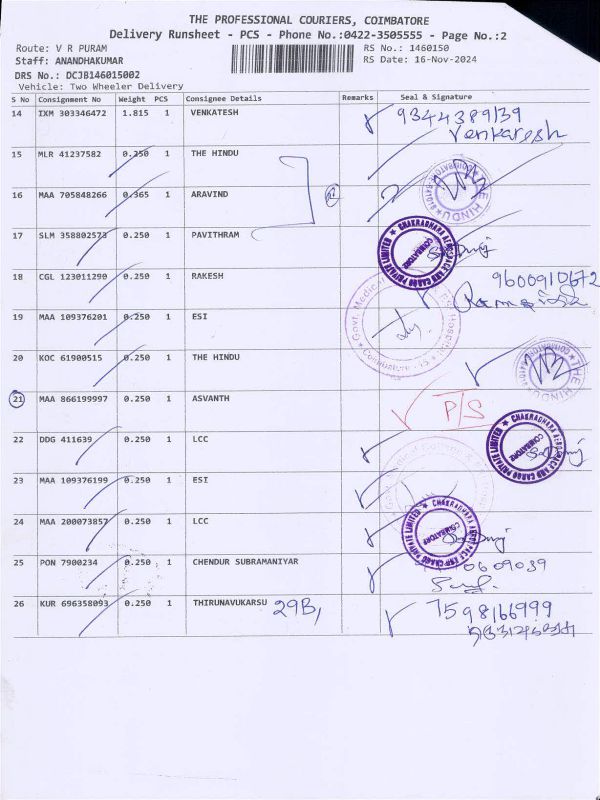 THE PROFESSIONAL COURIERS, COIMBATORE
Delivery Runsheet - PCS - Phone No.:0422-3505555 - Page No.:2
Route: V R PURAM RS No.: 1460150
Staff: ANANDHAKUMAR RS Date: 16-Nov-2024
DRS No.: DCJB146015002
Vehicle: Two Wheeler Delivery
S No Consignment No Weight PCS Consignee Details Remarks Seal & Signature
14 IXM 303346472 1.815 1 VENKATESH 9344389139
Venkatesh
15 MLR 41237582 0.250 1 THE HINDU
THE HINDU
16 MAA 705848266 0.365 1 ARAVIND
17 SLM 358802573 0.250 1 PAVITHRAM
CHAKRADHARA AEROSPACE AND CARGO PRIVATE LIMITED
COIMBATORE
18 CGL 123011290 0.250 1 RAKESH 9600910672
19 MAA 109376201 0.250 1 ESI
Govt. Medical Hospital
Coimbatore - 15
20 KOC 61900515 0.250 1 THE HINDU
THE HINDU
21 MAA 866199997 0.250 1 ASVANTH P/S
22 DDG 411639 0.250 1 LCC
CHAKRADHARA AEROSPACE AND CARGO PRIVATE LIMITED
COIMBATORE
23 MAA 109376199 0.250 1 ESI
24 MAA 200073857 0.250 1 LCC
CHAKRADHARA AEROSPACE AND CARGO PRIVATE LIMITED
COIMBATORE
25 PON 7900234 0.250 1 CHENDUR SUBRAMANIYAR 0609039
26 KUR 696358093 0.250 1 THIRUNAVUKARSU 29B, 7598166999